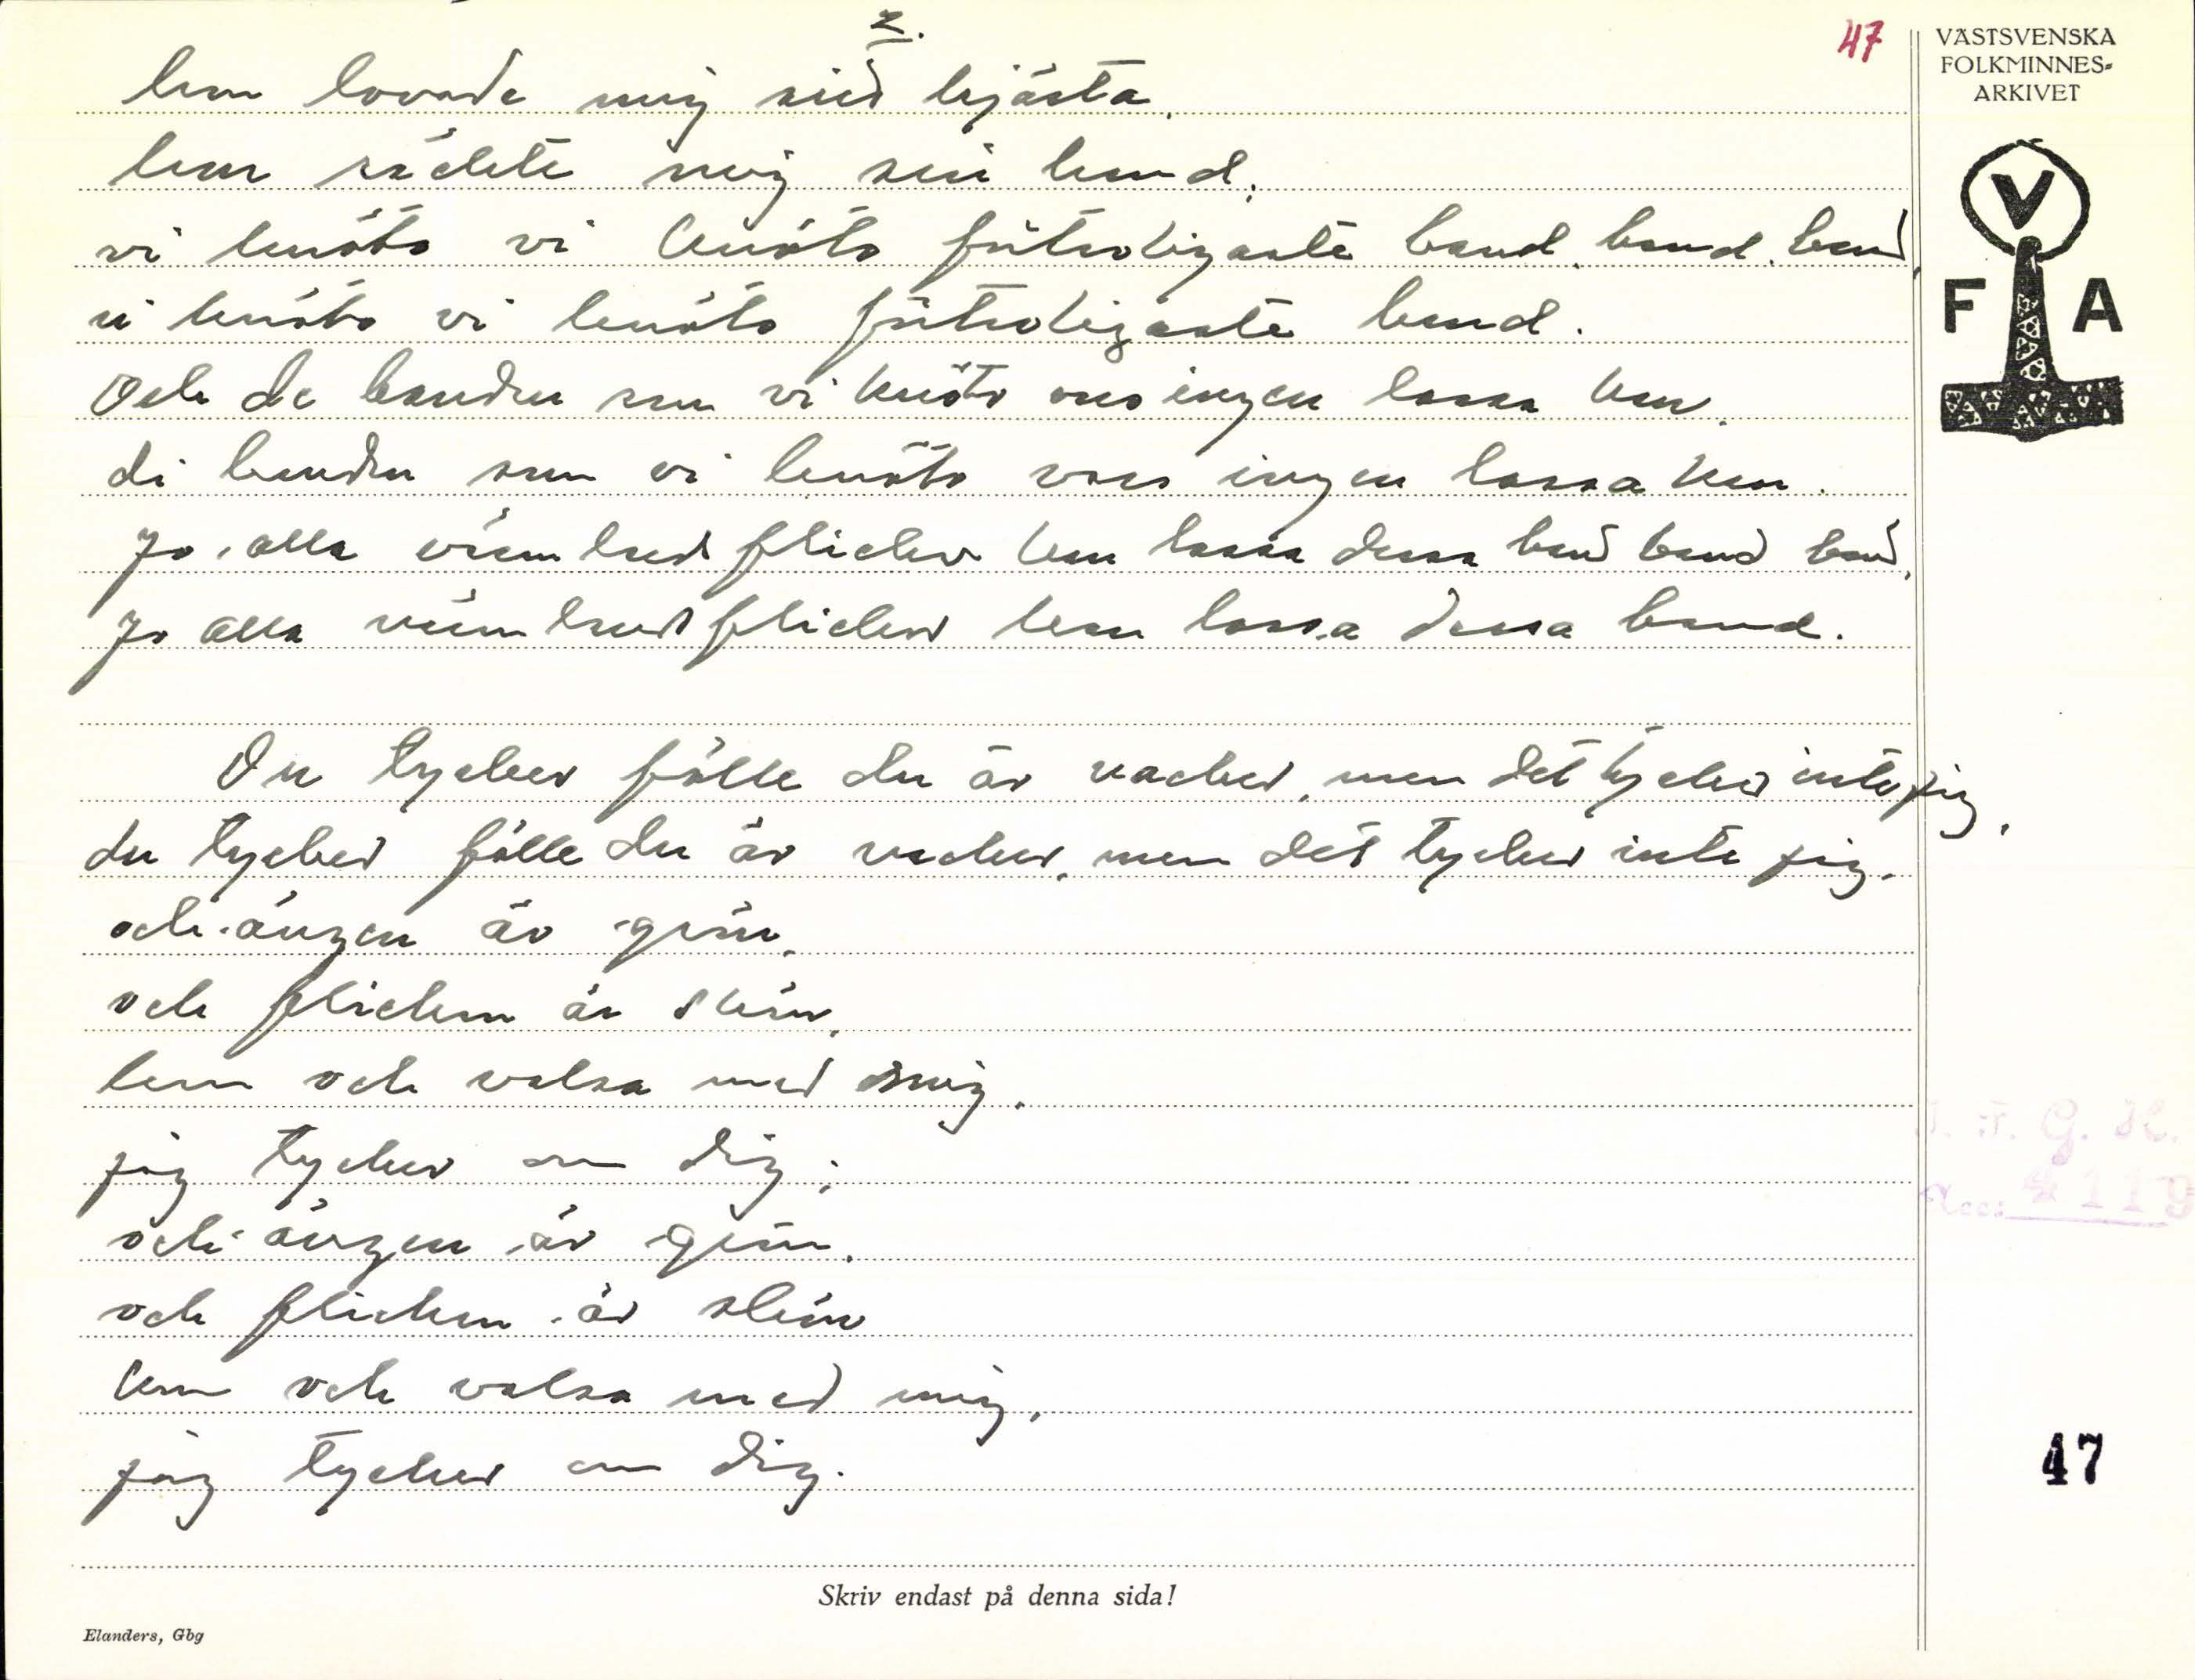 2.
47
VÄSTSVENSKA
FOLKMINNES-
ARKIVET
V
F A
han lovade mig sitt hjärta,
han räckte mig sin hand,
vi knöto vi knöto förtroligaste band, band, band,
vi knöto vi knöto förtroligaste band.
Och de banden som vi knöto oss ingen lossa kan,
di banden som vi knöto oss ingen lossa kan.
Jo, alla värmlandsflickor kan lossa dessa band band band,
Jo alla värmlandsflickor kan lossa dessa band.
Du tycker fälle du är vacker, men det tycker inte jag,
du tycker fälle du är vacker, men det tycker inte jag.
och ängen är grön,
och flickan är skön,
kom och valsa med mig,
jag tycker om dig;
och ängen är grön,
och flickan är skön
kom och valsa med mig,
jag tycker om dig.
G. H.
Acc: 4119
47
Skriv endast på denna sida!
Elanders, Gbg